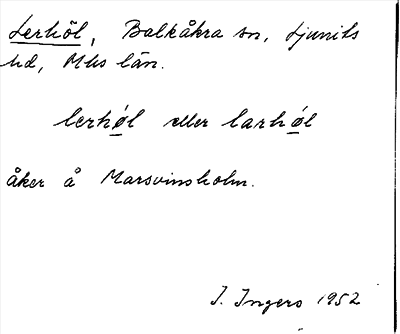 Lerhöl, Balkåkra sn, Ljunits
hd, Mhs län.
lerhøl eller larhøl
åker å Marsvinsholm.
I. Ingers 1952